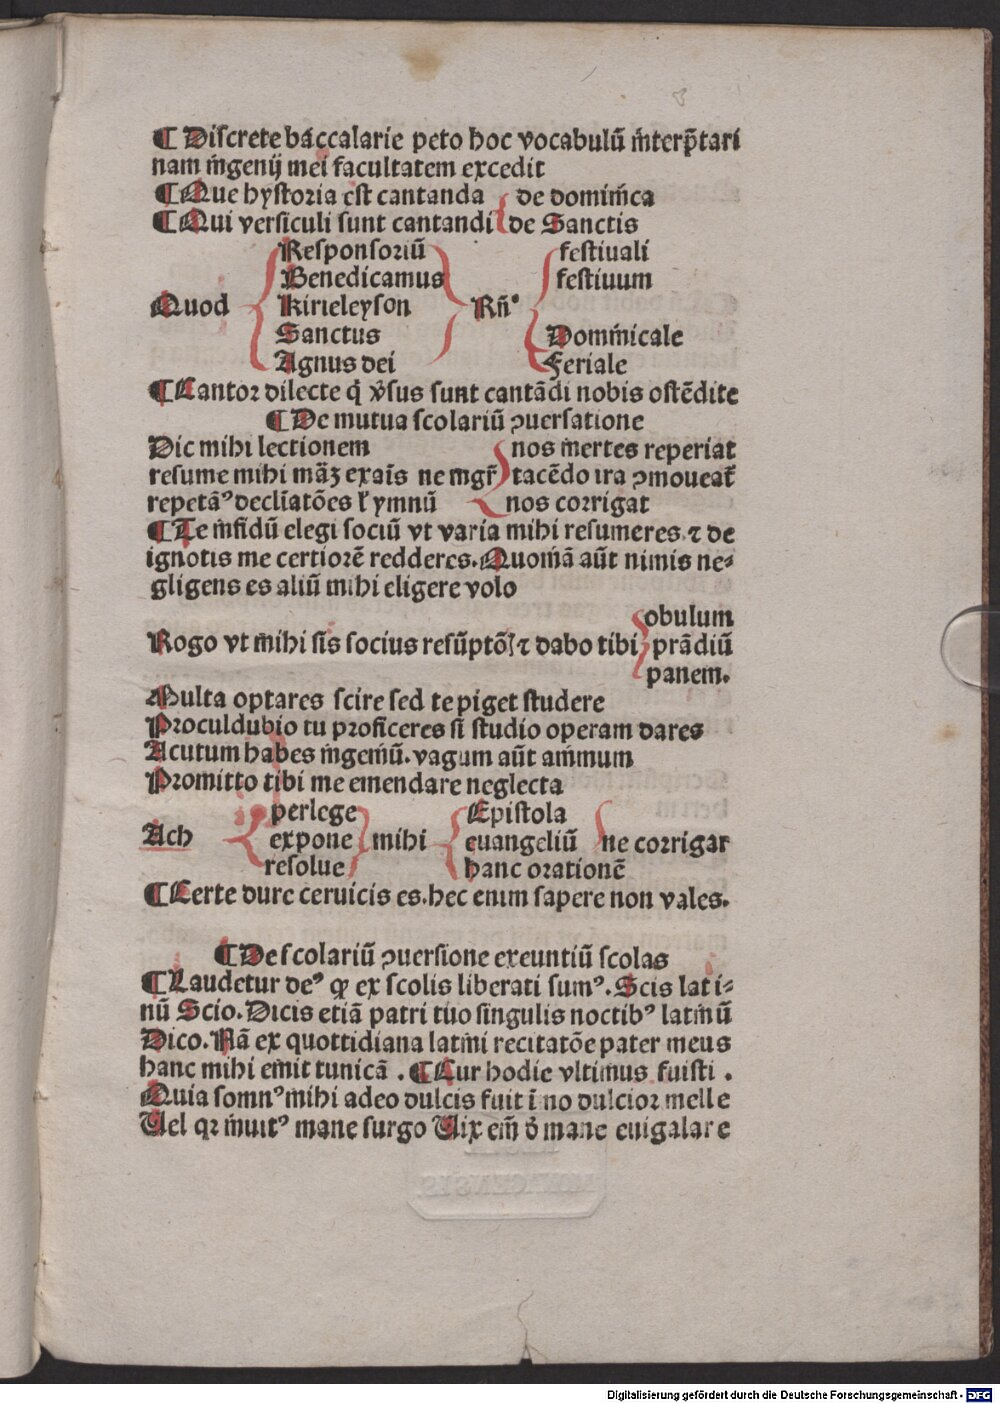 ¶ Diſcrete baccalarie peto hoc vocabulū ın̄terp̄tari
nam ın̄genij mei facultatem excedit
¶ Que hyſtoria eſt cantanda de domim̄ca
¶ Qui verſiculi ſunt cantandi de Sanctis
Reſponſoriū feſtiuali
Benedicamus feſtiuum
Quod Kirieleyſon Rn̄º
Sanctus Dommīcale
Agnus dei Feriale
¶ Cantor dilecte q̄ v̄ſus ſunt cantādi nobis oſtēdite
¶ De mutua ſcolariū ꝯuerſatione
Dic mihi lectionem nos ın̄ertes reperiat
reſume mihi māꝫ exaīs ne mgr̄ tacēdo ira ꝓmoueat̄
repetāꝰ declīatōes l̄ ymnū nos corrigat
¶ Te ın̄fidū elegi ſociū vt varia mihi reſumeres ⁊ de
ignotis me certiorē redderes. Quom̄ā aūt nimis ne⸗
gligens es aliū mihi eligere volo
obulum
Rogo vt mihi ſis ſocius reſūptōſ ⁊ dabo tibi prādiū
panem.
Multa optares ſcire ſed te piget ſtudere
Proculdubio tu proficeres ſi ſtudio operam dares
Acutum habes ın̄gem̄ū. vagum aūt am̄mum
Promitto tibi me emendare neglecta
perlege Epiſtola
Ach expone mihi euangeliū ne corrigar
reſolue hanc orationē
¶ Certe dure ceruicis es. hec enim ſapere non vales.
¶ De ſcolariū ꝯuerſione exeuntiū ſcolas
¶ Laudetur deꝰ ꝙ ex ſcolis liberati ſumꝰ. Scis lati⸗
nū Scio. Dicis etiā patri tuo ſingulis noctibꝰ latīnū
Dico. Nā ex quottidiana latīni recitatōe pater meus
hanc mihi emit tunicā . ¶ Cur hodie vltimus fuiſti .
Quia ſomnꝰ mihi adeo dulcis fuit ī no dulcior melle
Uel qꝛ ın̄uitꝰ mane ſurgo Uix em̄ ō mane euigalare
Digitalisierung gefördert durch die Deutsche Forschungsgemeinschaft - DFG